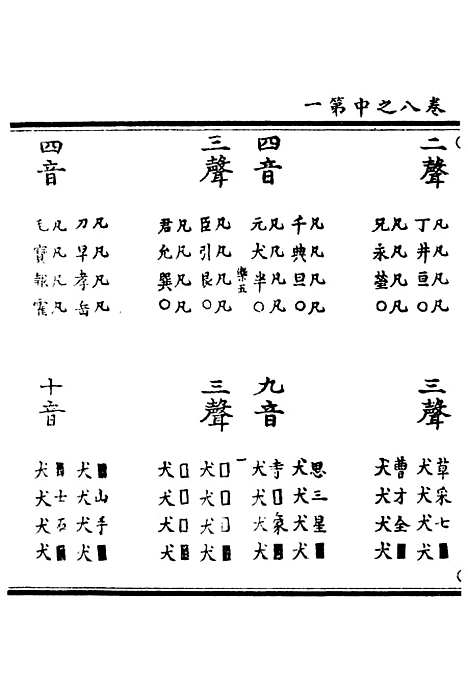 卷八之中第一
二聲
凡丁凡兄
凡井凡永
凡亘凡瑩
凡○凡○
四音
凡千凡元
凡典凡犬
凡旦凡半
凡○凡○
樂五
三聲
凡臣凡君
凡引凡允
凡艮凡巽
凡○凡○
四音
凡刀凡毛
凡早凡寶
凡孝凡報
凡岳凡霍
三聲
草犬曹犬
采犬才犬
七犬全犬
■犬■犬
九音
思犬寺犬
三犬□犬
星犬象犬
■犬■犬
一
三聲
□犬□犬
□犬□犬
□犬□犬
■犬■犬
十音
■犬■犬
山犬士犬
手犬石犬
■犬■犬